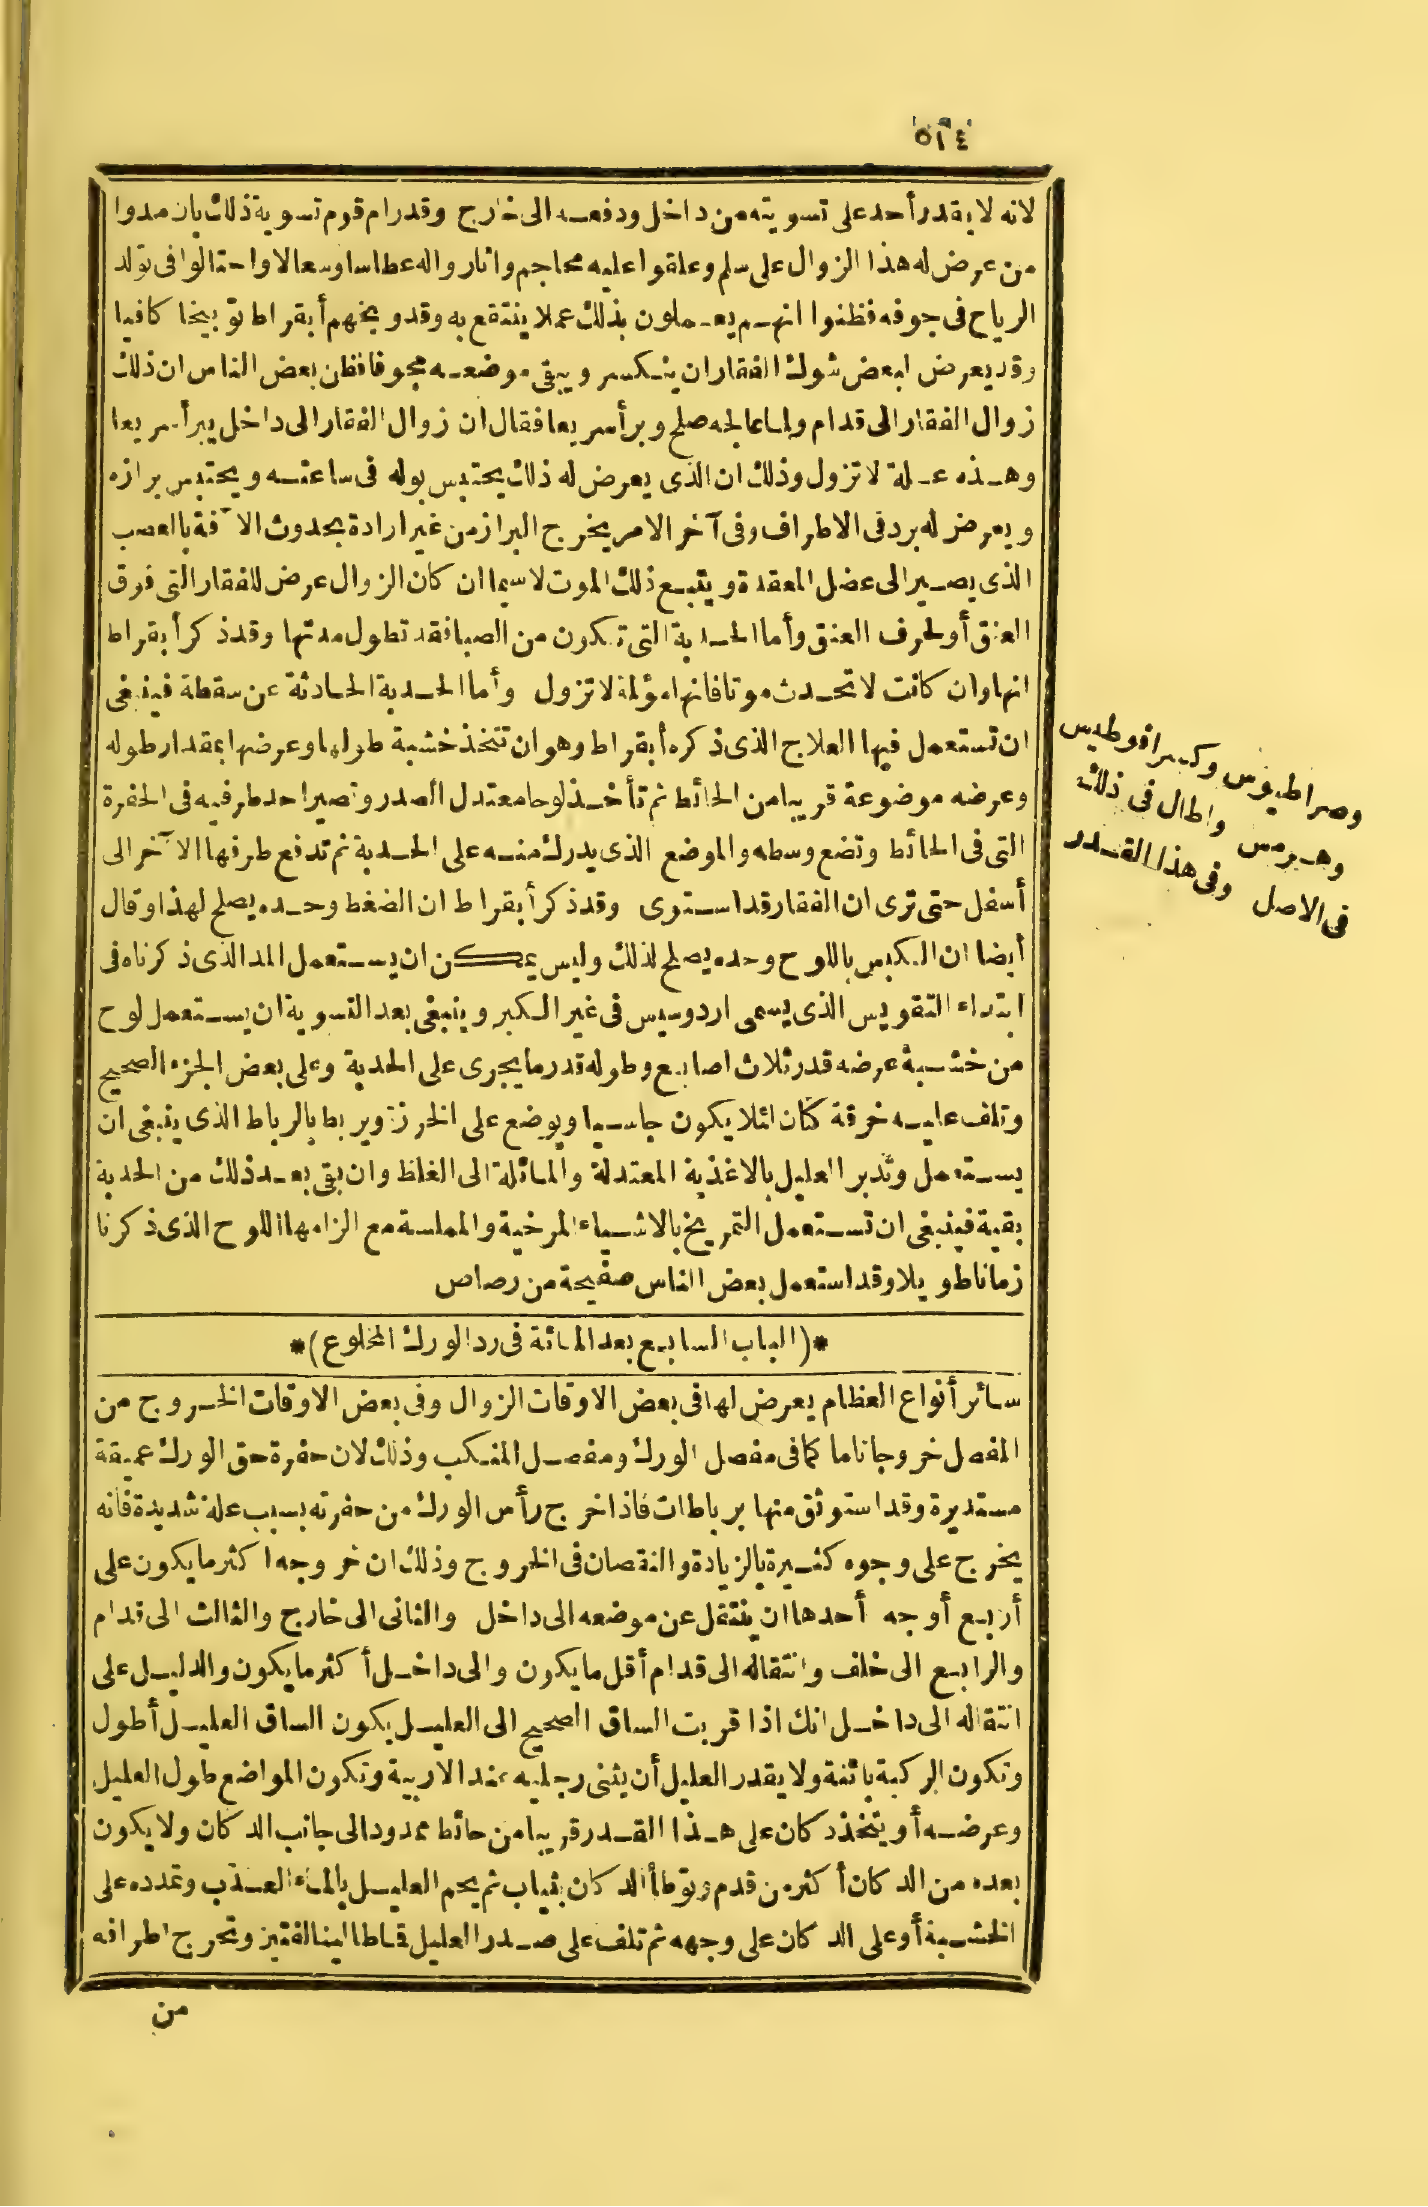 ٥١٤
لانه لا يقدر أحد على تسويته من داخل ودفعه الى خارج وقد رام قوم تسوية ذلك بان مدوا
من عرض له هذا الزوال على سلم وعلقوا عليه محاجم وأثاروا له عطاسا وسعالا واحتالوا فى تولد
الرياح فى جوفه فظنوا انهم يعملون بذلك عملا ينتفع به وقد وبخهم أبقراط توبيخا كافيا
وقد يعرض لبعض شوك الفقار ان ينكسر ويبقى موضعه مجوفا فظن بعض الناس ان ذلك
زوال الفقار الى قدام ولما عالجه صلح وبرأ سريعا فقال ان زوال الفقار الى داخل يبرأ سريعا
وهذه علة لا تزول وذلك ان الذى يعرض له ذلك يحتبس بوله فى ساعته ويحتبس برازه
ويعرض له برد فى الاطراف وفى آخر الامر يخرج البراز من غير ارادة بحدوث الآفة بالعصب
الذى يصير الى عضل المقعدة ويتبع ذلك الموت لا سيما ان كان الزوال عرض للفقار التى فوق
العنق أو لحرف العنق وأما الحدبة التى تكون من الصبا فقد تطول مدتها وقد ذكر أبقراط
انها وان كانت لا تحدث موتا فانها مؤلمة لا تزول وأما الحدبة الحادثة عن سقطة فينبغى
ان تستعمل فيها العلاج الذى ذكره أبقراط وهو ان تتخذ خشبة طولها وعرضها بمقدار طوله
وعرضه موضوعة قريبا من الحائط ثم تأخذ لوحا معتدل الصدر وتصير احد طرفيه فى الحفرة
التى فى الحائط وتضع وسطه والموضع الذى يدرك منه على الحدبة ثم تدفع طرفها الآخر الى
أسفل حتى ترى ان الفقار قد استوى وقد ذكر أبقراط ان الضغط وحده يصلح لهذا وقال
أيضا ان الكبس باللوح وحده يصلح لذلك وليس يمكن ان يستعمل المد الذى ذكرناه فى
ابتداء التقويس الذى يسمى اردوسيس فى غير الكبر وينبغى بعد التسوية ان يستعمل لوح
من خشبة عرضه قدر ثلاث اصابع وطوله قدر ما يجرى على الحدبة وعلى بعض الجزء الصحيح
وتلف عليه خرقة كتان لئلا يكون جاسيا ويوضع على الخرزة ويربط بالرباط الذى ينبغى ان
يستعمل وتدبر العليل بالاغذية المعتدلة والمائلة الى الغلظ وان بقى بعد ذلك من الحدبة
بقية فينبغى ان تستعمل التمريخ بالاشياء المرخية والململسة مع الزامها اللوح الذى ذكرنا
زمانا طويلا وقد استعمل بعض الناس صفيحة من رصاص
وصراطيوس وكبرافوطيس
وهرمس واطال فى ذلك
فى الاصل وفى هذا القدر
*(الباب السابع بعد المائة فى رد الورك المخلوع)*
سائر أنواع العظام يعرض لها فى بعض الاوقات الزوال وفى بعض الاوقات الخروج من
المفصل خروجا تاما كما فى مفصل الورك ومفصل المنكب وذلك لان حفرة حق الورك عميقة
مستديرة وقد استوثق منها برباطات فاذا خرج رأس الورك من حفرته بسبب علة شديدة فانه
يخرج على وجوه كثيرة بالزيادة والنقصان فى الخروج وذلك ان خروجه اكثر ما يكون على
أربع أوجه أحدها ان ينتقل عن موضعه الى داخل والثانى الى خارج والثالث الى قدام
والرابع الى خلف وانتقاله الى قدام أقل ما يكون والى داخل أكثر ما يكون والدليل على
انتقاله الى داخل انك اذا قربت الساق الصحيح الى العليل يكون الساق العليل أطول
وتكون الركبة ناتئة ولا يقدر العليل أن يثنى رجليه عند الاربية وتكون المواضع طول العليل
وعرضه أو يتخذ دكان على هذا القدر قريبا من حائط ممدود الى جانب الدكان ولا يكون
بعده من الدكان أكثر من قدم وتوطأ الدكان بثياب ثم يحم العليل بالماء العذب وتمدده على
الخشبة أو على الدكان على وجهه ثم تلف على صدر العليل قماطا لينا لفتين وتخرج اطرافه
من